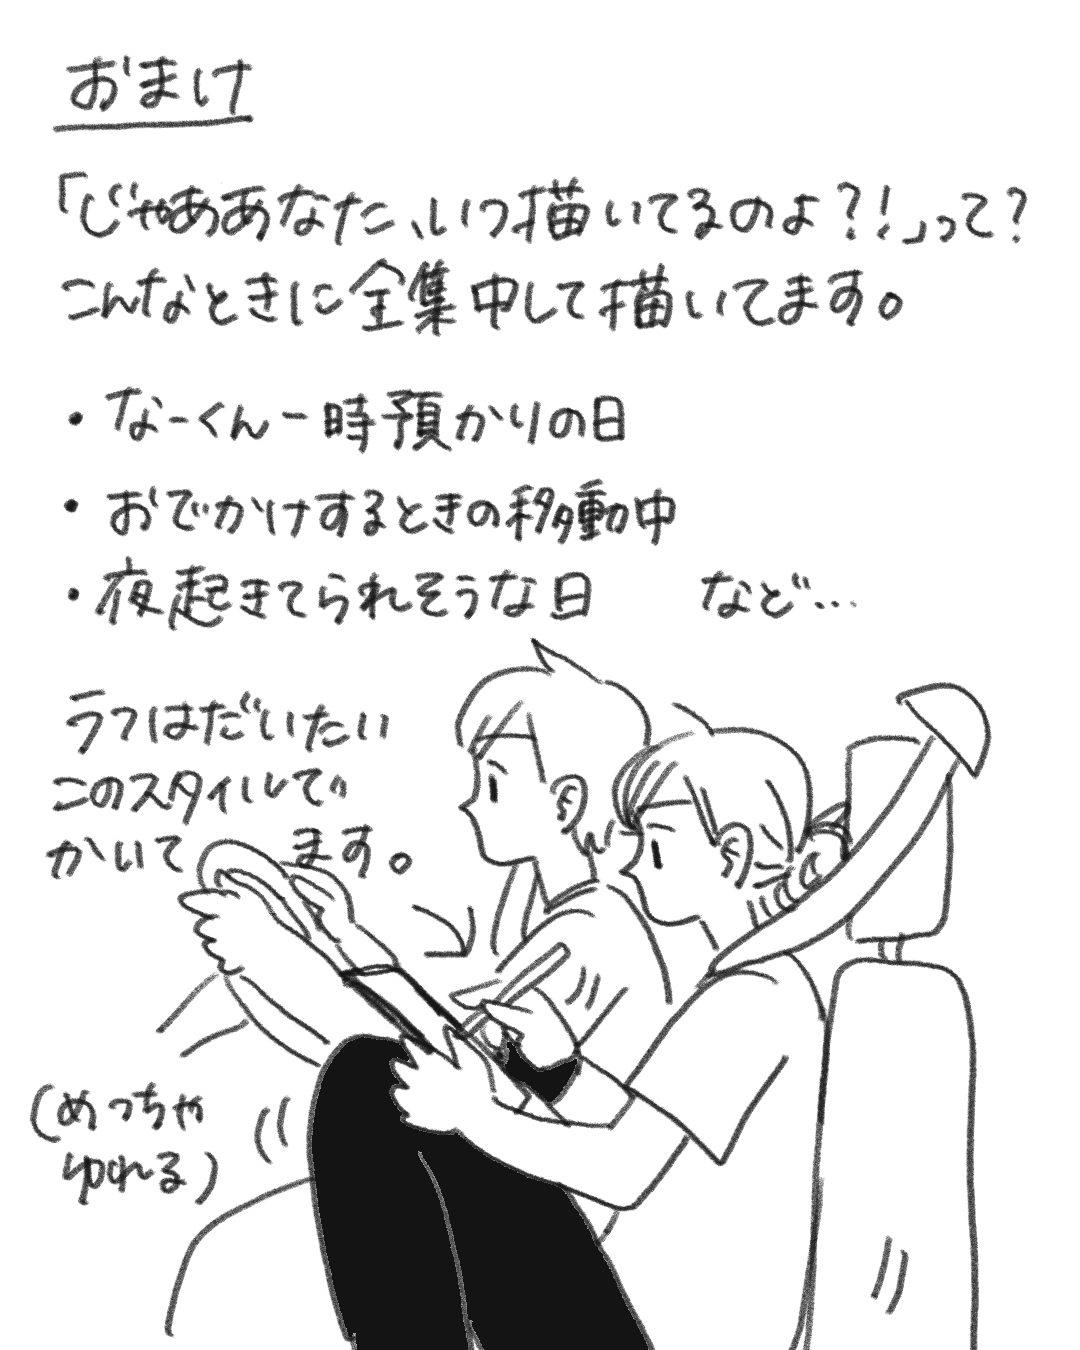 おまけ
「じゃああなた、いつ描いてるのよ?!」って?
こんなときに全集中して描いてます。
・なーくん一時預かりの日
・おでかけするときの移動中
・夜起きてられそうな日 など…
ラフはだいたい
このスタイルで
かいて ます。
(めっちゃ
ゆれる)